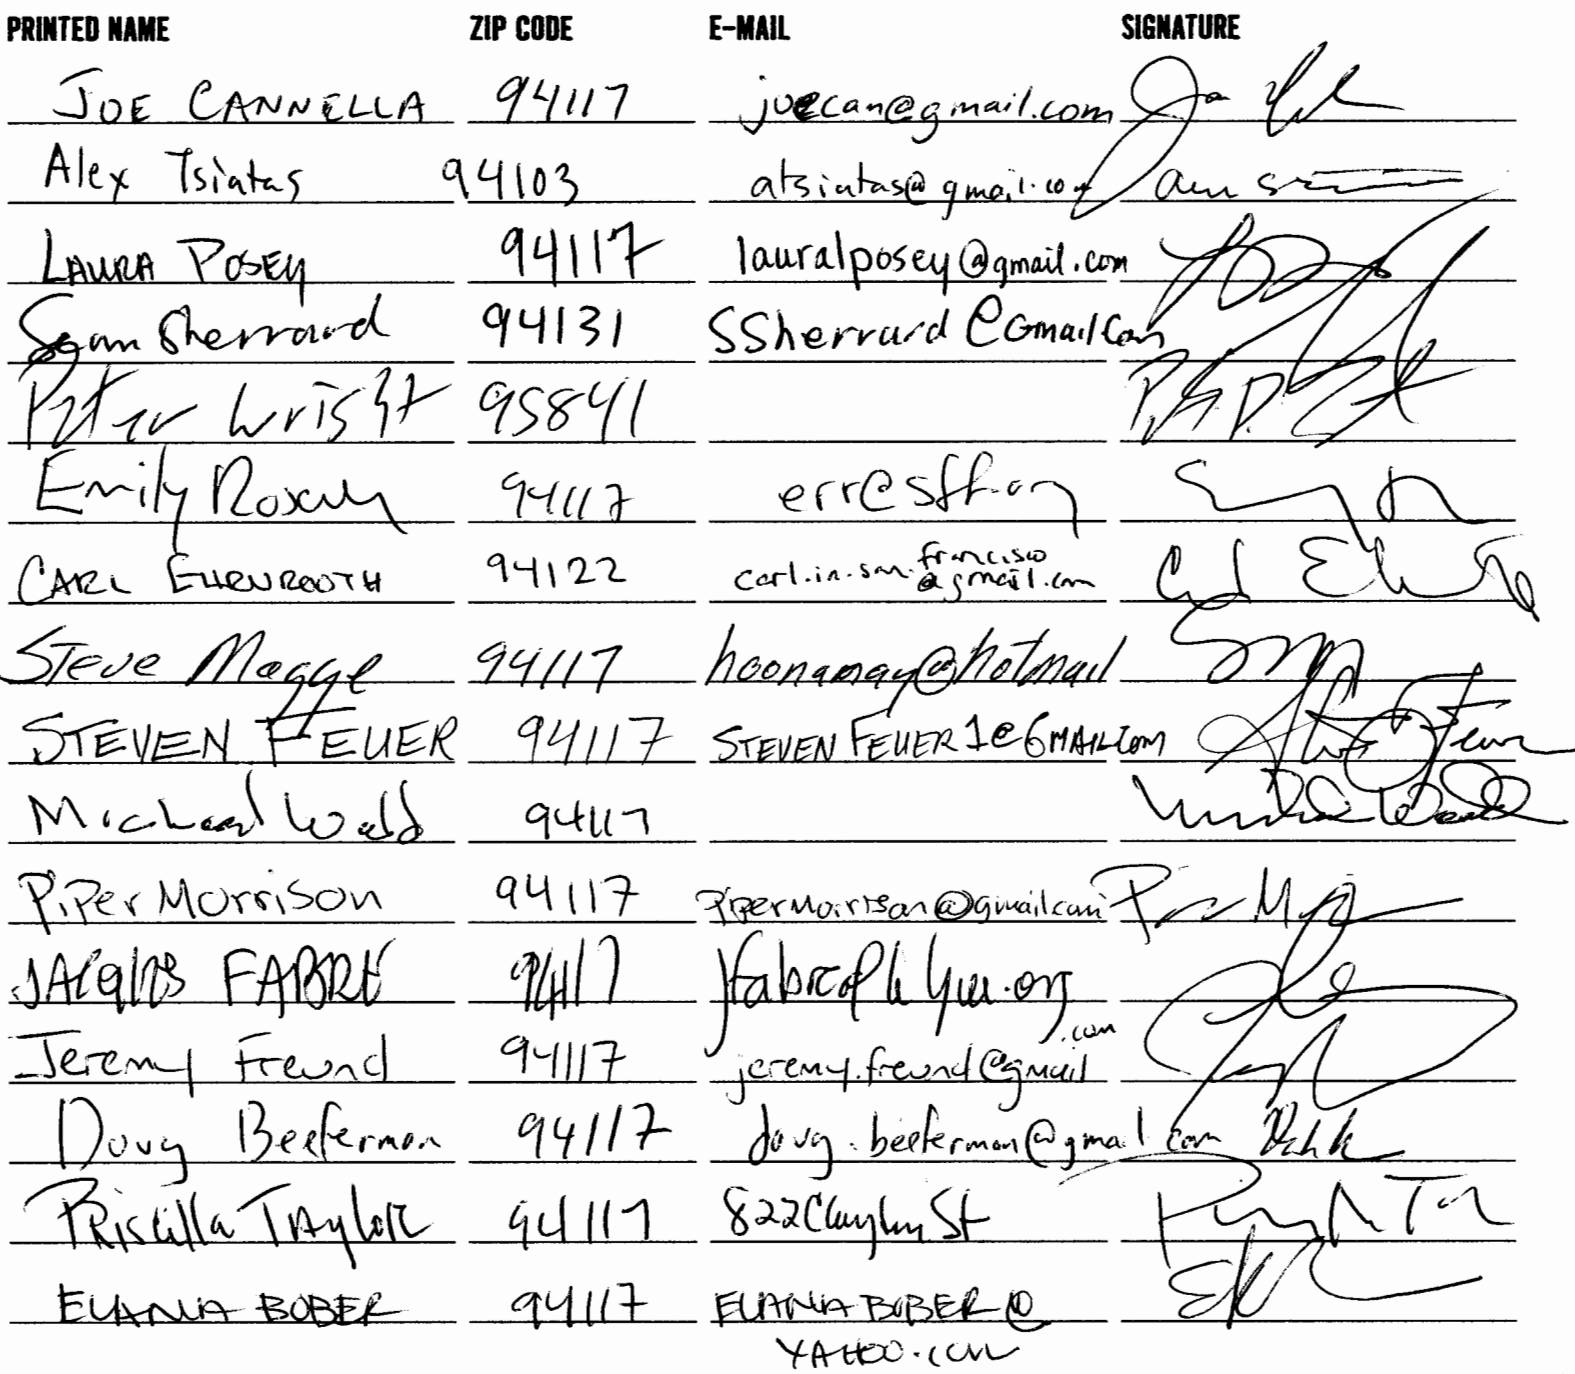 PRINTED NAME ZIP CODE E-MAIL SIGNATURE
JOE CANNELLA 94117 joecan@gmail.com
Alex Tsiatas 94103 atsiatas@gmail.com
LAURA POSEY 94117 lauralposey@gmail.com
Sean Sherrard 94131 SSherrard@Gmail.Com
Peter Wright 95841
Emily 94117
CARL EHRNROOTH 94122 carl.in.san.francisco
@gmail.com
Steve Magge 94117 hoonamay@hotmail
STEVEN FEUER 94117 STEVEN FEUER1@GMAIL.COM
Michael Wald 94117
Piper Morrison 94117 pipermorrison@gmail.com
JACQUES FABRE 94117
.com
Jeremy Freund 94117 jeremy.freund@gmail
Doug Beeferman 94117 doug.beeferman@gmail.com
PRiscilla TAyloR 94117 822 Clayton St
ELANA BOBER 94117 ELANABOBER@
YAHOO.COM